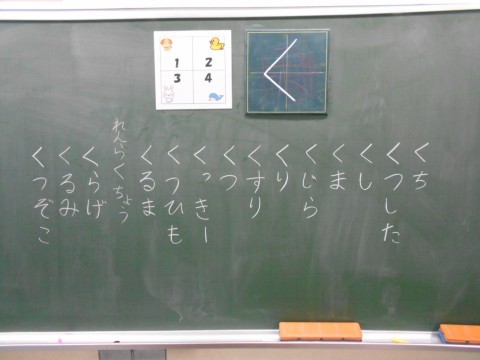 1 2
3 4
く
くち
くつした
くし
くま
くじら
くり
くすり
くつ
くっきー
くつひも
くるま
れんらくちょう
くらげ
くるみ
くつぞこ